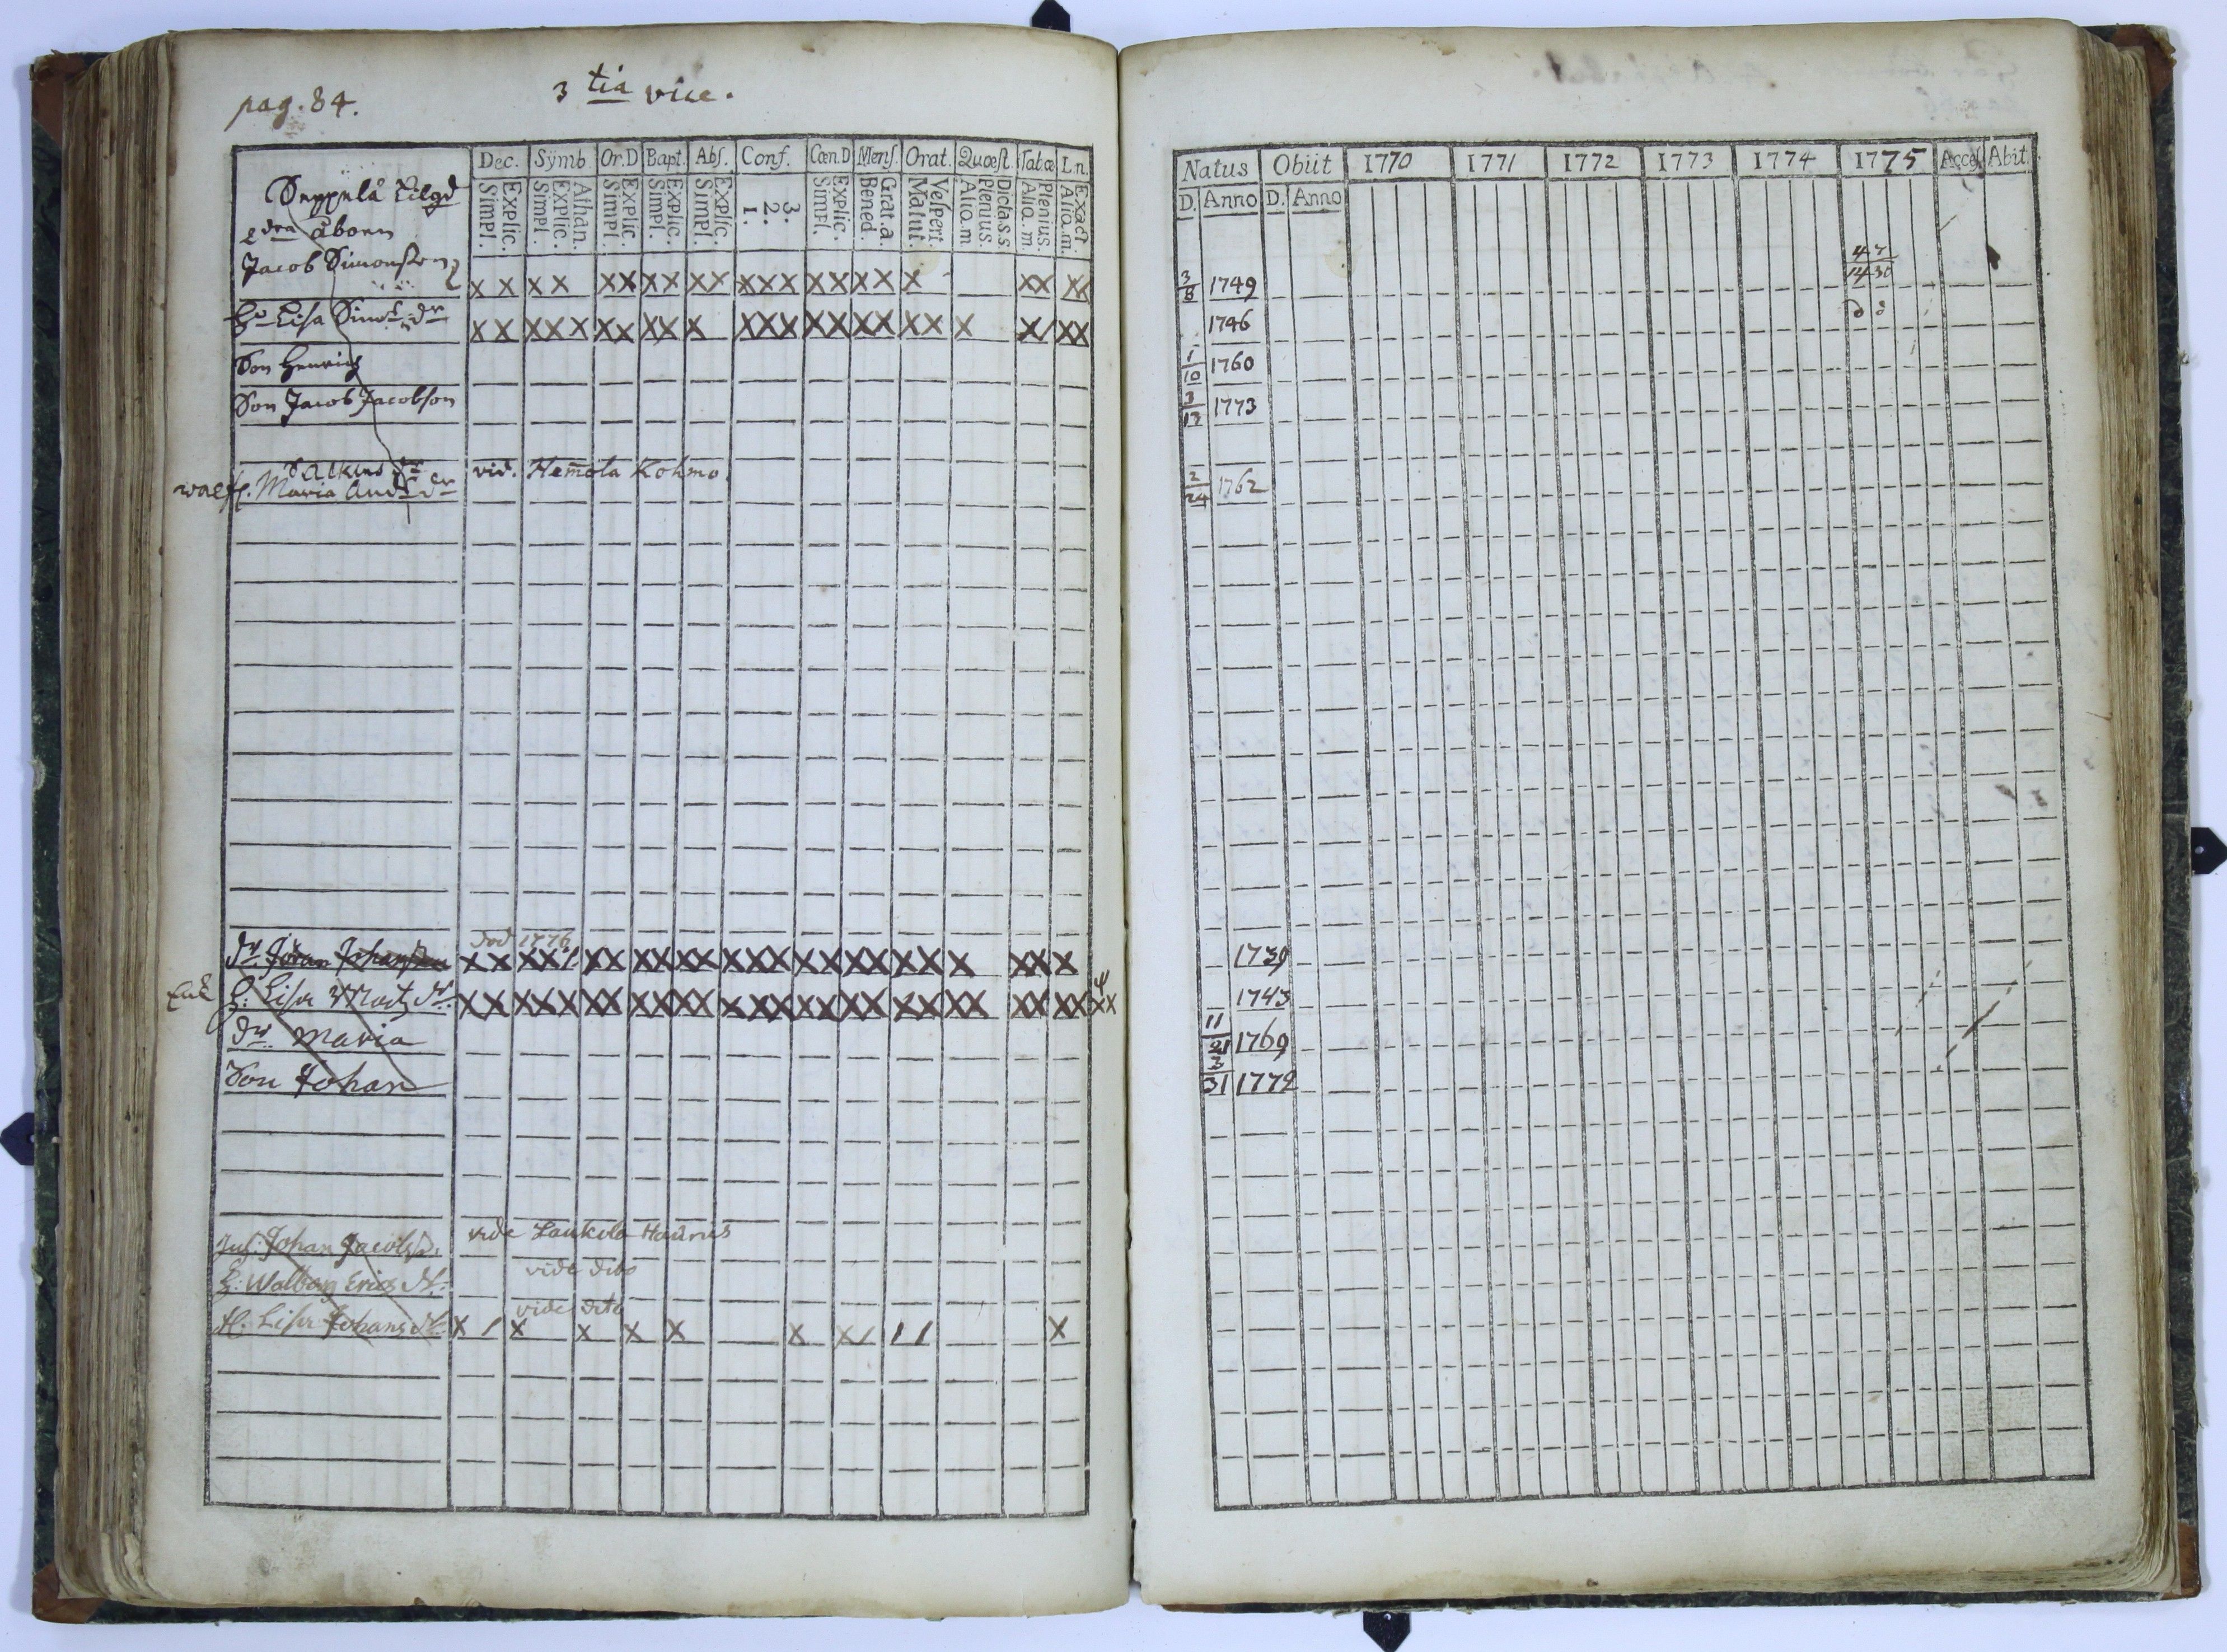 pag. 84.
3 tia vice.
Dec. Symb. Or.D Bapt. Abs. Conf. Cœn.D Mens. Orat. Quæst. Tabæ L.n.
Simpl. Explic. Simpl. Explic. Athan. Simpl. Explic. Simpl. Explic. Simpl. Explic. 1. 2. 3. Simpl. Explic. Bened. Grat.a. Matut. Vespert. Alio.m Plenius. Dicta.s.s. Alio.m. Plenius. Alio.m. Exact.
Seppelä
2dra åboen
Jacob Simonsson
x x x x x x x x x x x x x x x x x x x x x x
Hu Lisa Sims dr
x x x x x x x x x x x x x x x x x x x x x / x x
Son Henrich
Son Jacob Jacobson
Maria And dr vid. Hemola Kohmo.
död 1776
dr Jöran Johansson
x x x x / x x x x x x x x x x x x x x x x x x x
Enk H: Lisa Matz dr
x x x x x x x x x x x x x x x x x x x x x x x x x x x
dr Maria
Son Johan
Inh. Johan Jacobss. vide Laukola Haunus
H: Walborg Erics dr. vide dito
vide dito
H. Lisa Johans dr x / x x x x x x / / / x
Natus Obiit 1770 1771 1772 1773 1774 1775 Acces. Abit.
D. Anno D. Anno
3/8 1749
1746
1/10 1760
3/13 1773
2/24 1762
1739
1743
11/21 1769
3/31 1772